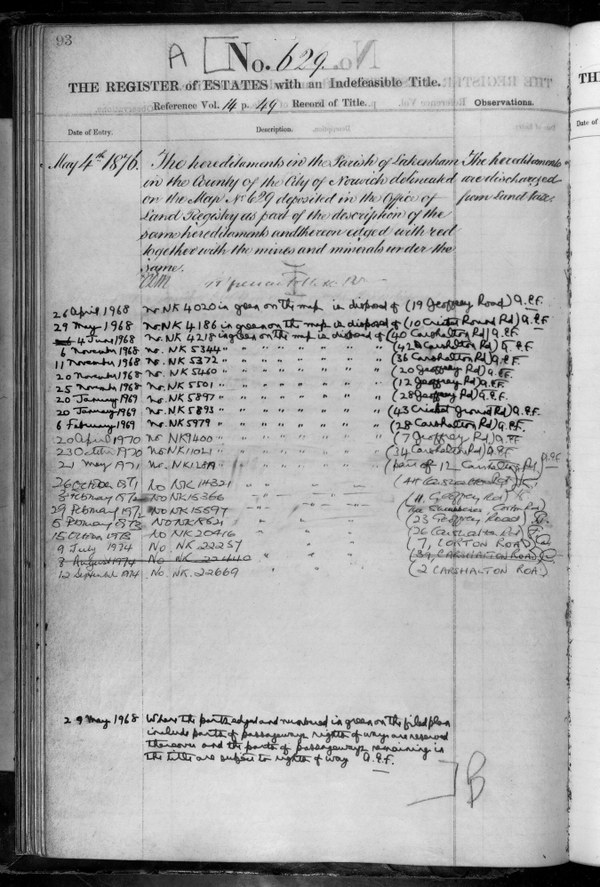 93
A No. 629
THE REGISTER of ESTATES with an Indefeasible Title.
Reference Vol. 14 p. 49 Record of Title. Observations.
Date of Entry. Description.
May 4th 1876. The hereditaments in the Parish of Lakenham The hereditaments
in the County of the City of Norwich delineated are discharged
on the Map No 629 deposited in the Office of from Land tax.
Land Registry as part of the description of the
same hereditaments and thereon edged with red
together with the mines and minerals under the
same.
26 April 1968 no. NK 4020 in green on the map is disposed of (19 Geoffrey Road) A.P.F.
29 May 1968 no. NK 4186 in green on the map is disposed of (10 Cricket Ground Rd) A.P.F.
4 June 1968 no. NK 4218 in green on the map is disposed of (40 Carshalton Rd) A.P.F.
6 November 1968 no. NK 5344 " " " " " " " (42 Carshalton Rd) A.P.F.
11 November 1968 no. NK 5372 " " " " " " " (36 Carshalton Rd) A.P.F.
20 November 1968 no. NK 5460 " " " " " " " (20 Geoffrey Rd) A.P.F.
25 November 1968 no. NK 5501 " " " " " " " (12 Geoffrey Rd) A.P.F.
20 January 1969 no. NK 5897 " " " " " " " (28 Geoffrey Rd) A.P.F.
20 January 1969 no. NK 5893 " " " " " " " (43 Cricket Ground Rd) A.P.F.
6 February 1969 no. NK 5979 " " " " " " " (28 Carshalton Rd) A.P.F.
20 April 1970 no NK 9400 " " " " " " " (7 Geoffrey Rd) A.P.F.
23 October 1970 no NK 11021 " " " " " " " (34 Carshalton Rd) A.P.F.
21 May 1971 no NK " " " " (part of 12 Carshalton Rd) A.P.F.
26 October 1971 No NK 14321 " " " (44 Carshalton Rd)
8 February 1972 No NK 15366 " " " (11 Geoffrey Rd)
29 February 1972 No NK 15597 " " " (The Corton Rd)
5 February 1973 No NK " " " (23 Geoffrey Road)
15 October 1973 No NK 20416 " " " (26 Carshalton Rd)
9 July 1974 No. NK 22257 " " " (7, CORTON ROAD)
8 August 1974 No. NK 22440 " " " (39 CARSHALTON ROAD)
12 September 1974 No. NK. 22669 " " " (2 CARSHALTON ROAD)
29 May 1968 Where the parts edged and numbered in green on the filed plan
include parts of passageways rights of way are reserved
thereover and the parts of passageways remaining in
the title are subject to rights of way A.P.F.
B